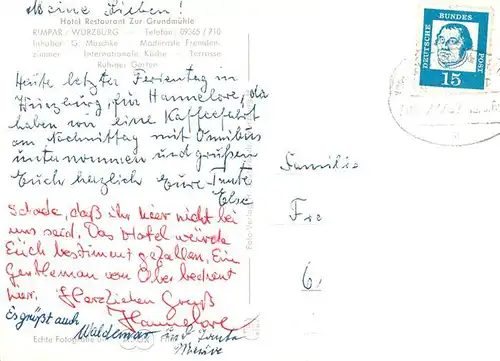 Meine Lieben!
Hotel Restaurant Zur Grundmühle
RIMPAR / WÜRZBURG - Telefon 09365 / 710
Inhaber: G. Maschke Modernste Fremden-
zimmer - Internationale Küche - Terrasse
Ruhiger Garten
Heute letzter Ferientag in
Würzburg, für Hannelore, da
haben wir eine Kaffeefahrt
am Nachmittag mit Omnibus
unternommen und grüßen
Euch herzlich Eure Tante
Else
Schade, daß ihr hier nicht bei
uns seid. Das Hotel würde
Euch bestimmt gefallen. Ein
Gentleman vom Ober bedient
hier. Herzlichen Gruß
Hannelore
Es grüßt auch Waldemar und Tante
Echte Fotografie
DEUTSCHE BUNDES POST
15
Familie
Fre
6